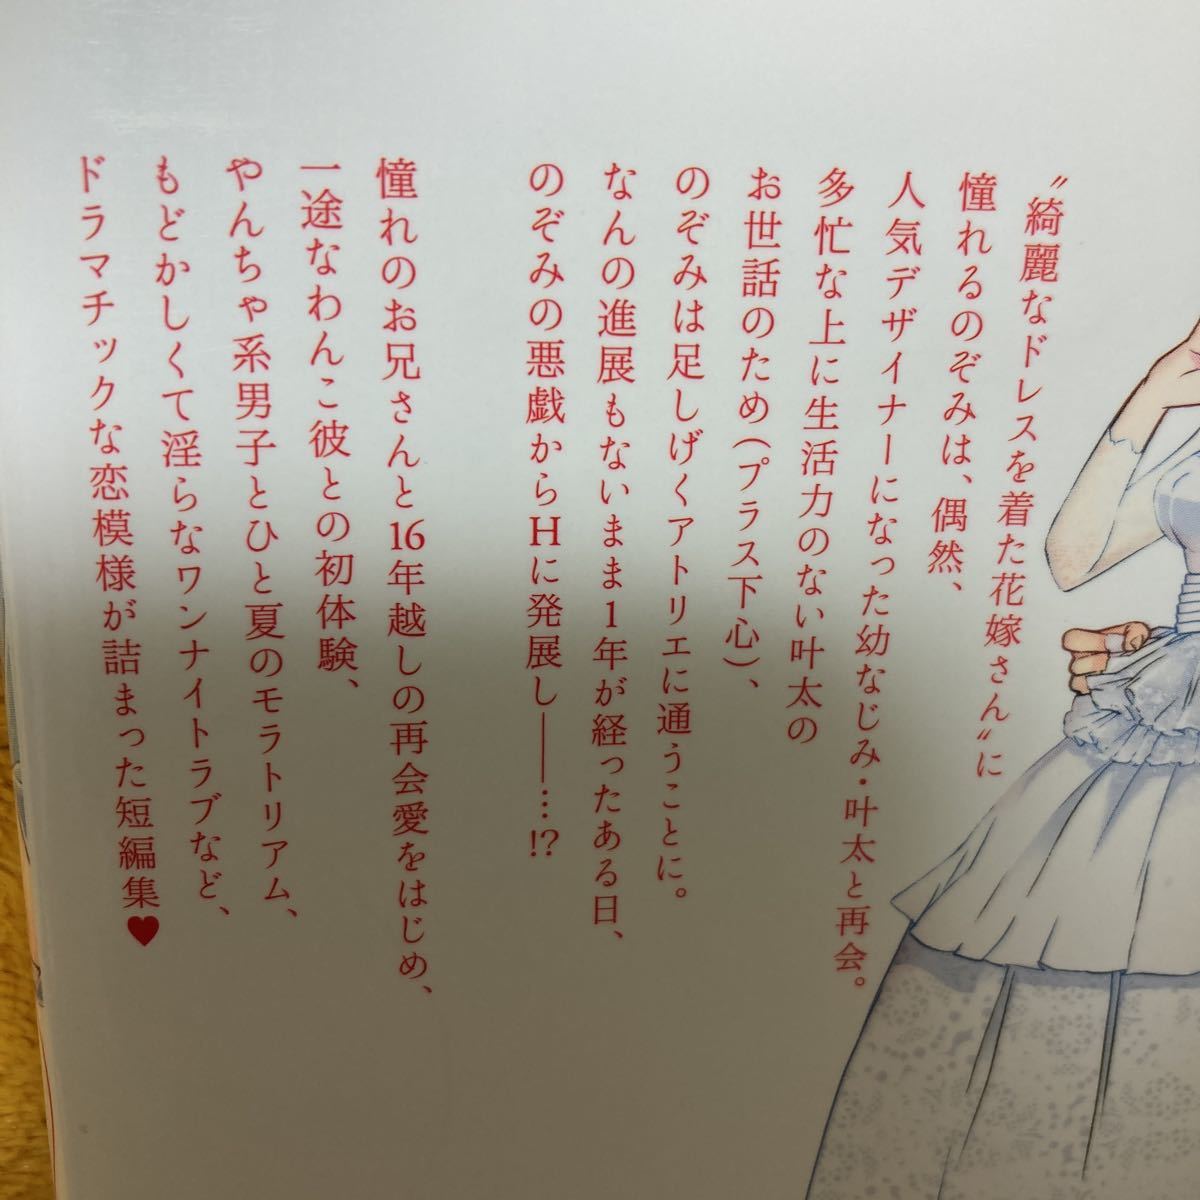 〝綺麗なドレスを着た花嫁さん〟に
憧れるのぞみは、偶然、
人気デザイナーになった幼なじみ・叶太と再会。
多忙な上に生活力のない叶太の
お世話のため(プラス下心)、
のぞみは足しげくアトリエに通うことに。
なんの進展もないまま1年が経ったある日、
のぞみの悪戯からHに発展し――…!?
憧れのお兄さんと16年越しの再会愛をはじめ、
一途なわんこ彼との初体験、
やんちゃ系男子とひと夏のモラトリアム、
もどかしくて淫らなワンナイトラブなど、
ドラマチックな恋模様が詰まった短編集♥